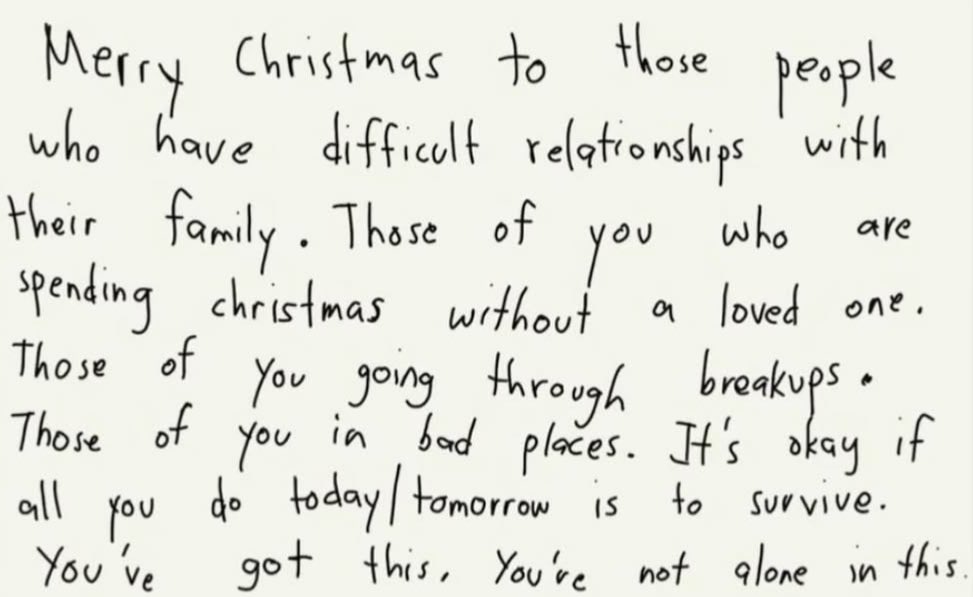 Merry Christmas to those people
who have difficult relationships with
their family. Those of you who are
spending christmas without a loved one.
Those of you going through breakups.
Those of you in bad places. It's okay if
all you do today/tomorrow is to survive.
You've got this. You're not alone in this.